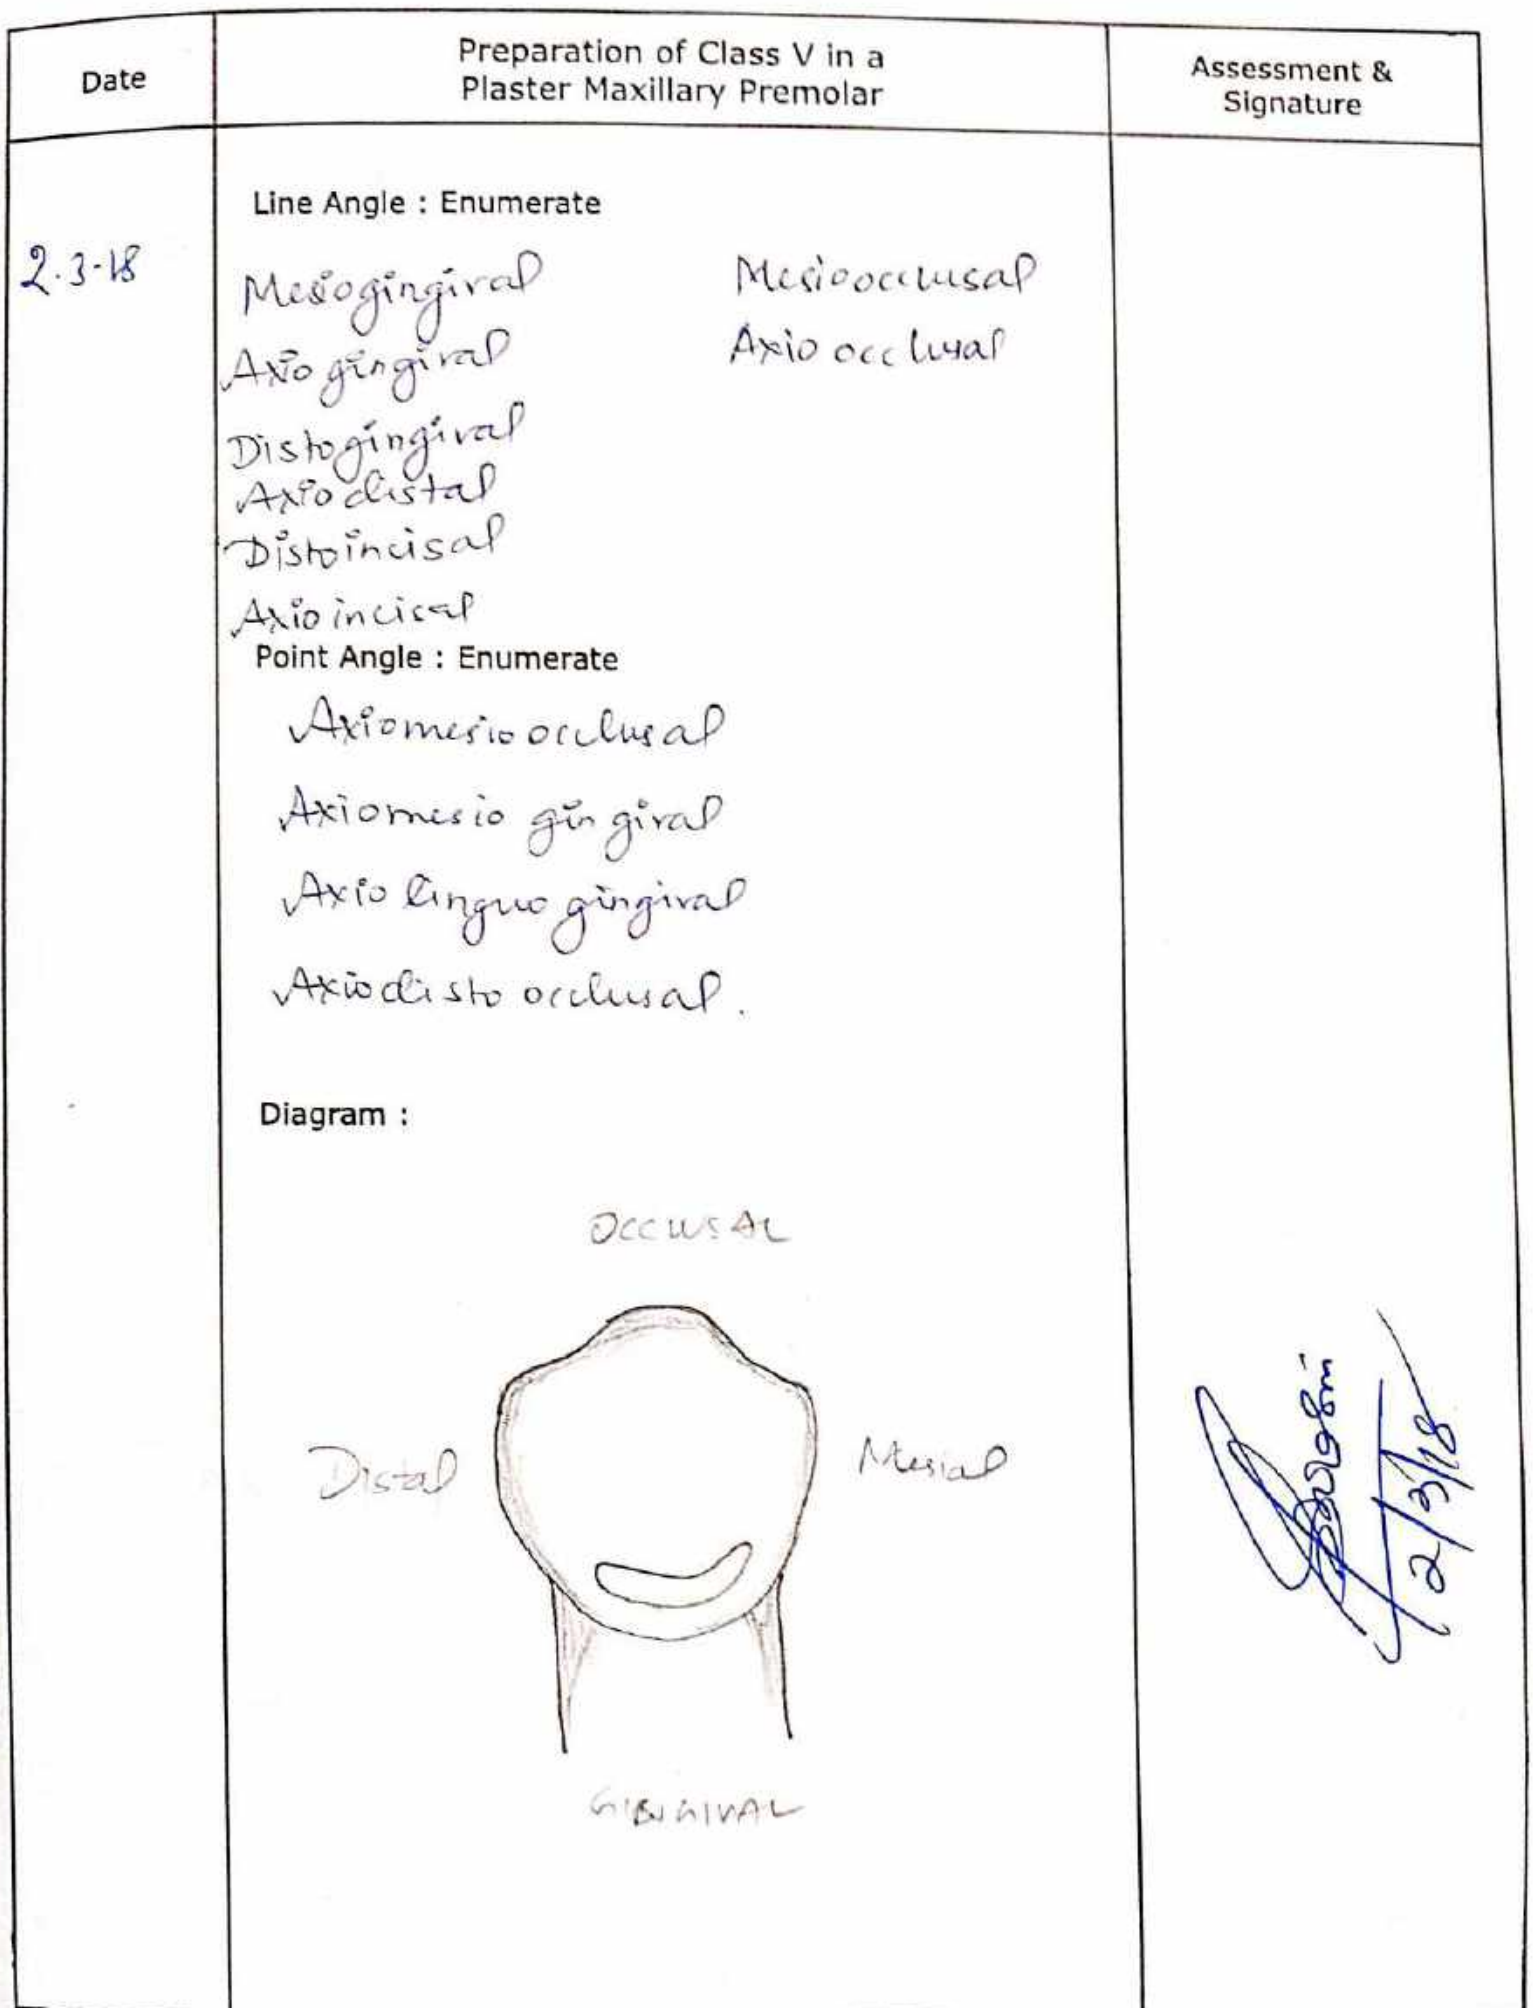 Date
Preparation of Class V in a
Plaster Maxillary Premolar
Assessment &
Signature
Line Angle : Enumerate
2.3-18
Mesiogingival Mesioocclusal
Axiogingival Axio occlusal
Distogingival
Axio distal
Distoincisal
Axio incisal
Point Angle : Enumerate
Axiomesio occlusal
Axiomesio gingival
Axio linguo gingival
Axiodisto occlusal.
Diagram :
OCCLUSAL
Distal
Mesial
2/3/18
GINGIVAL